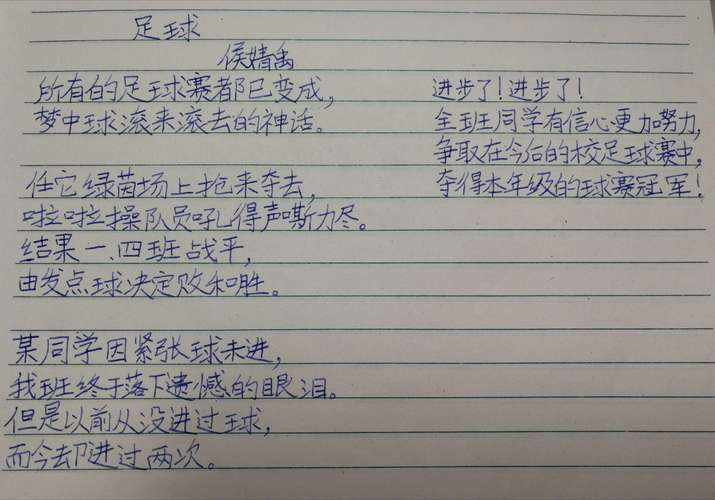 足球
侯婧禹
所有的足球赛都已变成，
梦中球滚来滚去的神话。
任它绿茵场上抢来夺去，
啦啦操队员吼得声嘶力尽。
结果一、四班战平，
由发点球决定败和胜。
某同学因紧张球未进，
我班终于落下遗憾的眼泪。
但是以前从没进过球，
而今却进过两次。
进步了！进步了！
全班同学有信心更加努力，
争取在今后的校足球赛中，
夺得本年级的球赛冠军！